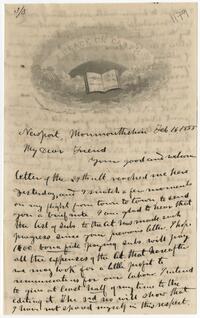 1179
Newport, Monmouthshire Feb 16 1855
My Dear Friend
Your good and welcome
letter of the 29th ult reached me here
yesterday, and I snatch a few moments
on my flight from town to town to send
you a brief note. I am glad to hear that
the list of subs to the has made such
progress since your previous letter. I hope
1800 bona fide paying subs will pay
all the expenses of the that hereafter
we may look for a little profit to
remunerate for our labor. I intend
to give at least half of my time to the
editing of it. The 2nd no will show that
I have not spared myself in this respect.